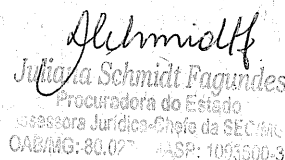 Juliana Schmidt Fagundes
Procuradora do Estado
Assessora Jurídica-Chefe da SEC/MG
OAB/MG: 80.027 MASP: 1093500-3